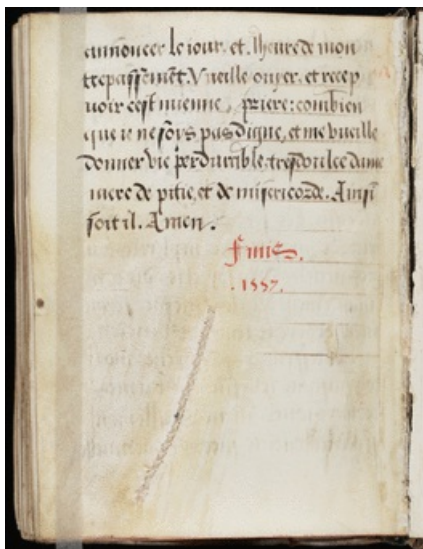 annoncer le iour. et. lheure de mon
trepassemēt. Vueille ouyer. et recep
uoir ceste mienne, priere: combien
que ie ne soys pas digne, et me vueille
donner vie perdurable. tresdoulce dame
mere de pitie, et de misericorde. Ainsi
soit il. Amen.
Finis.
.1557.